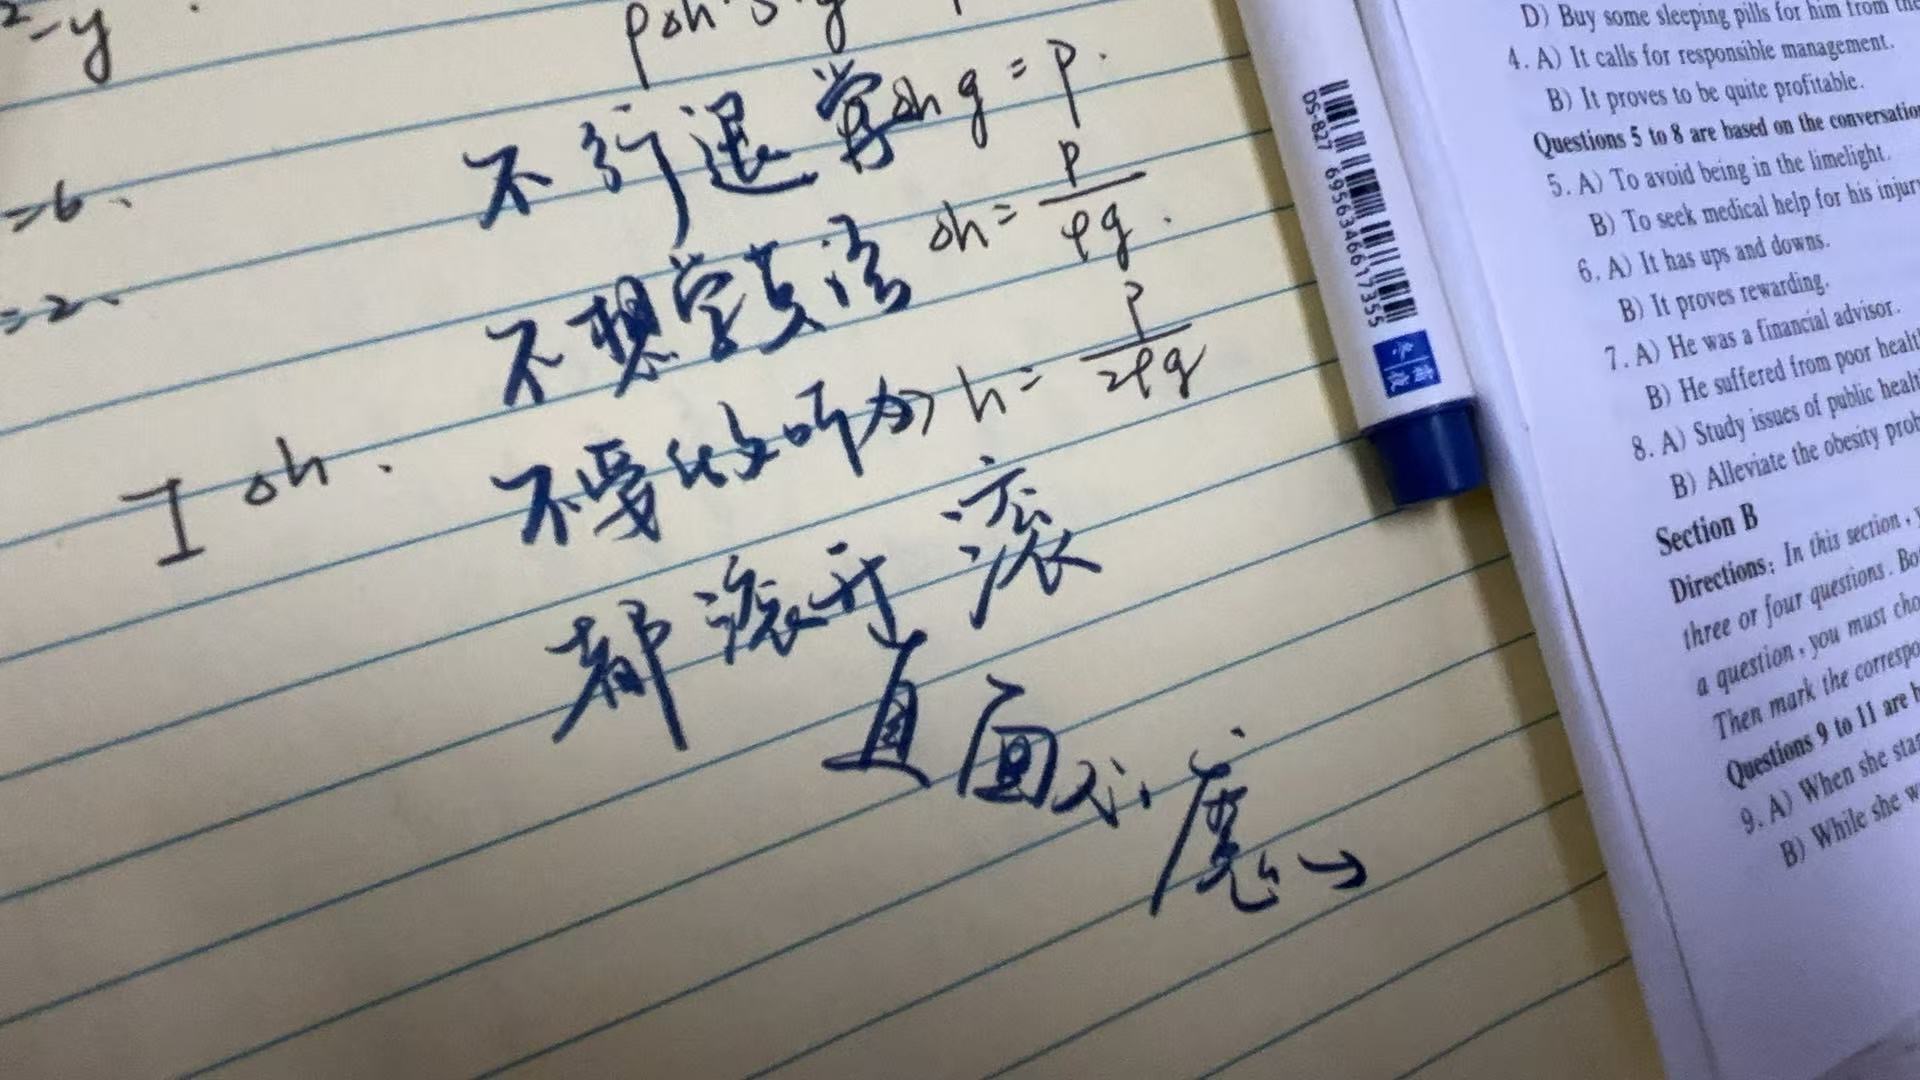 ²-y
=6、
=2、
I △h.
ρ△h g = P.
△h = P/ρg.
h = P/2ρg
不行退学
不想学英语
不要收听力
都滚开 滚
直面心魔→
DS-827 6956346617355
D) Buy some sleeping pills for him from the
4. A) It calls for responsible management.
B) It proves to be quite profitable.
Questions 5 to 8 are based on the conversation
5. A) To avoid being in the limelight.
B) To seek medical help for his injur
6. A) It has ups and downs.
B) It proves rewarding.
7. A) He was a financial advisor.
B) He suffered from poor health
8. A) Study issues of public healt
B) Alleviate the obesity prob
Section B
Directions: In this section,
three or four questions. Bo
a question, you must cho
Then mark the correspo
Questions 9 to 11 are b
9. A) When she sta
B) While she w